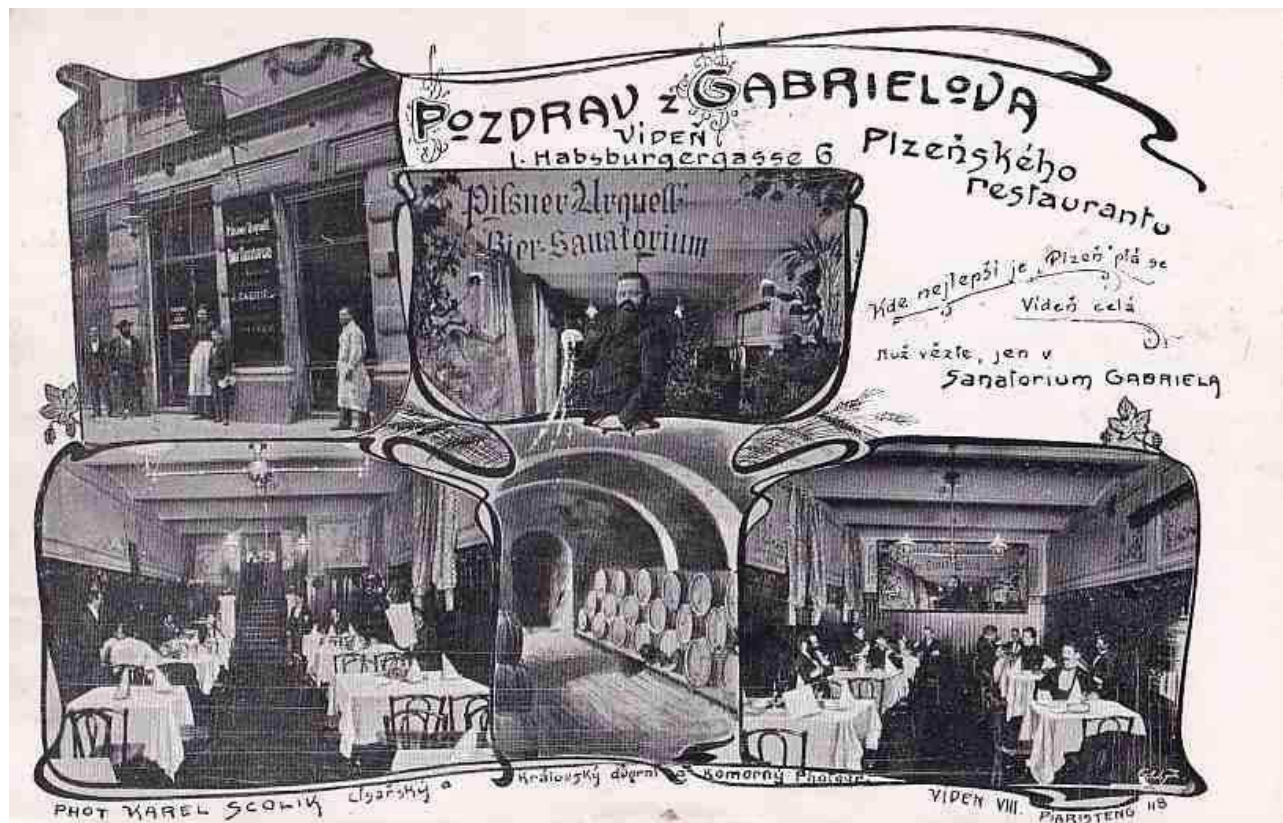 Pozdrav z Gabrielova
Vídeň
I. Habsburgergasse 6
Plzeňského
restaurantu
Pilsner Urquell
Bier-Sanatorium
Kde nejlepší je „Plzeň“ ptá se
Vídeň celá
Nuž vězte, jen v
Sanatorium GABRIELA
PHOT KAREL SCOLIK Císařský a
Královský dvorní
Komorný Photogr.
VÍDEŇ VIII. PIARISTENG 118